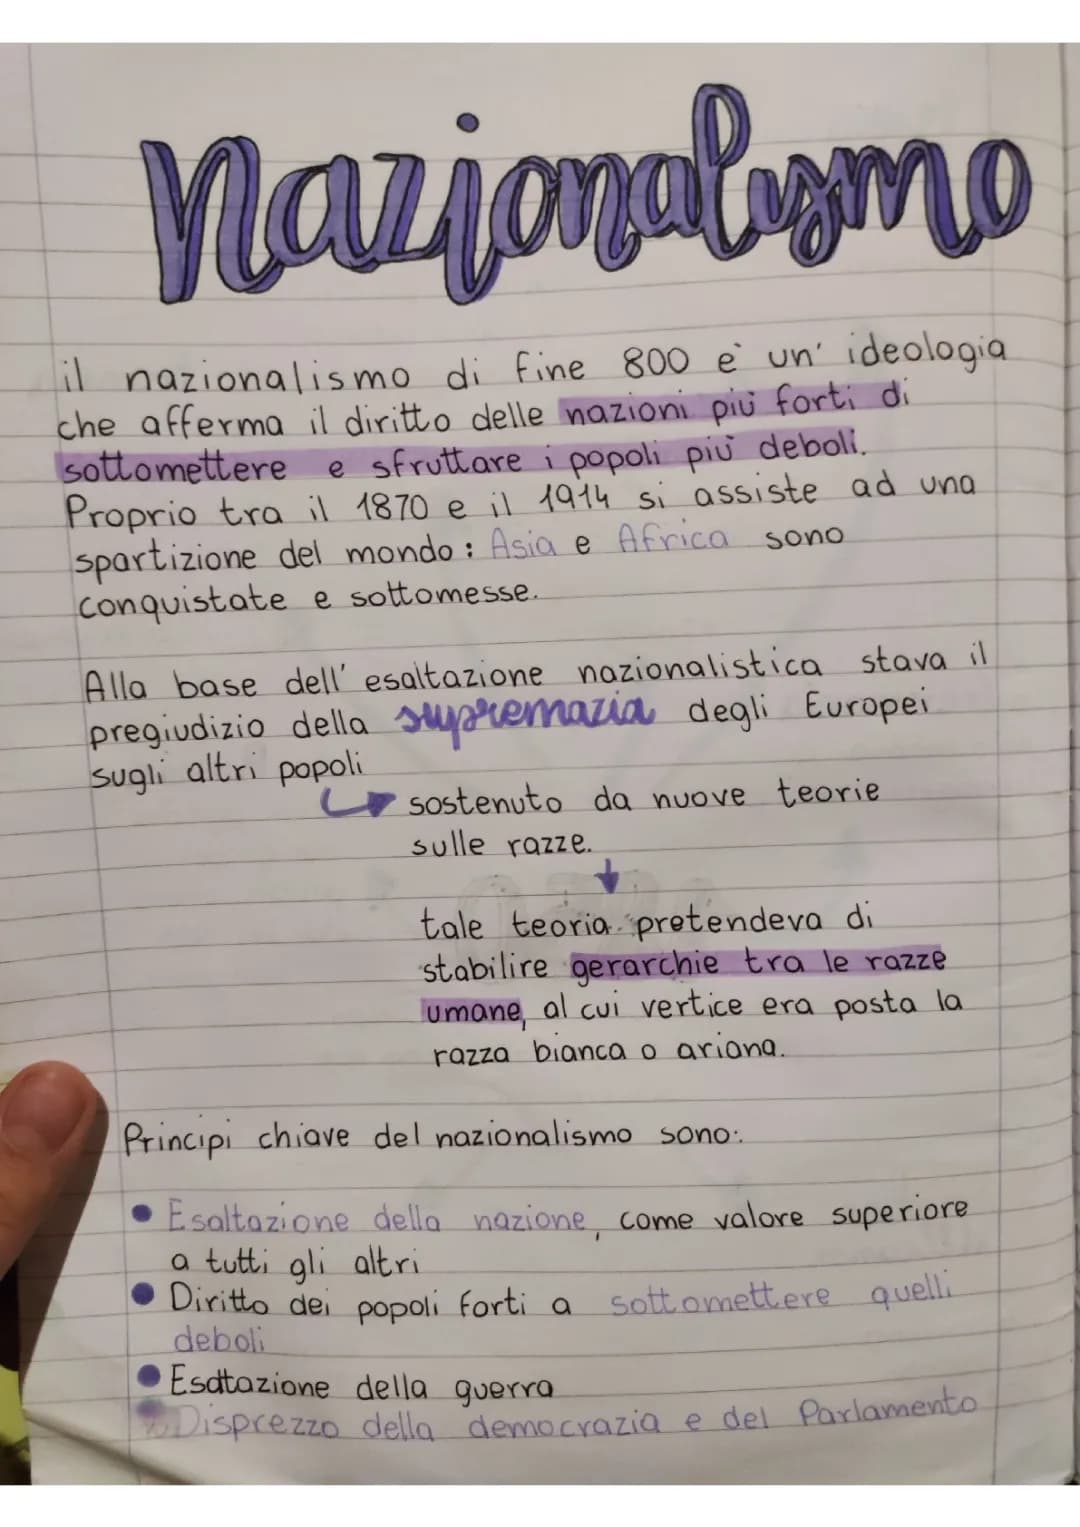 Nazionalismo
il nazionalismo di fine 800 e' un' ideologia
che afferma il diritto delle nazioni più forti di
sottomettere e sfruttare i popoli più deboli.
Proprio tra il 1870 e il 1914 si assiste ad una
spartizione del mondo: Asia e Africa sono
conquistate e sottomesse.
Alla base dell' esaltazione nazionalistica stava il
pregiudizio della supremazia degli Europei
sugli altri popoli
sostenuto da nuove teorie
sulle razze.
tale teoria pretendeva di
stabilire gerarchie tra le razze
umane, al cui vertice era posta la
razza bianca o ariana.
Principi chiave del nazionalismo sono:
• Esaltazione della nazione, come valore superiore
a tutti gli altri
• Diritto dei popoli forti a sottomettere quelli
deboli
• Esaltazione della guerra
• Disprezzo della democrazia e del Parlamento